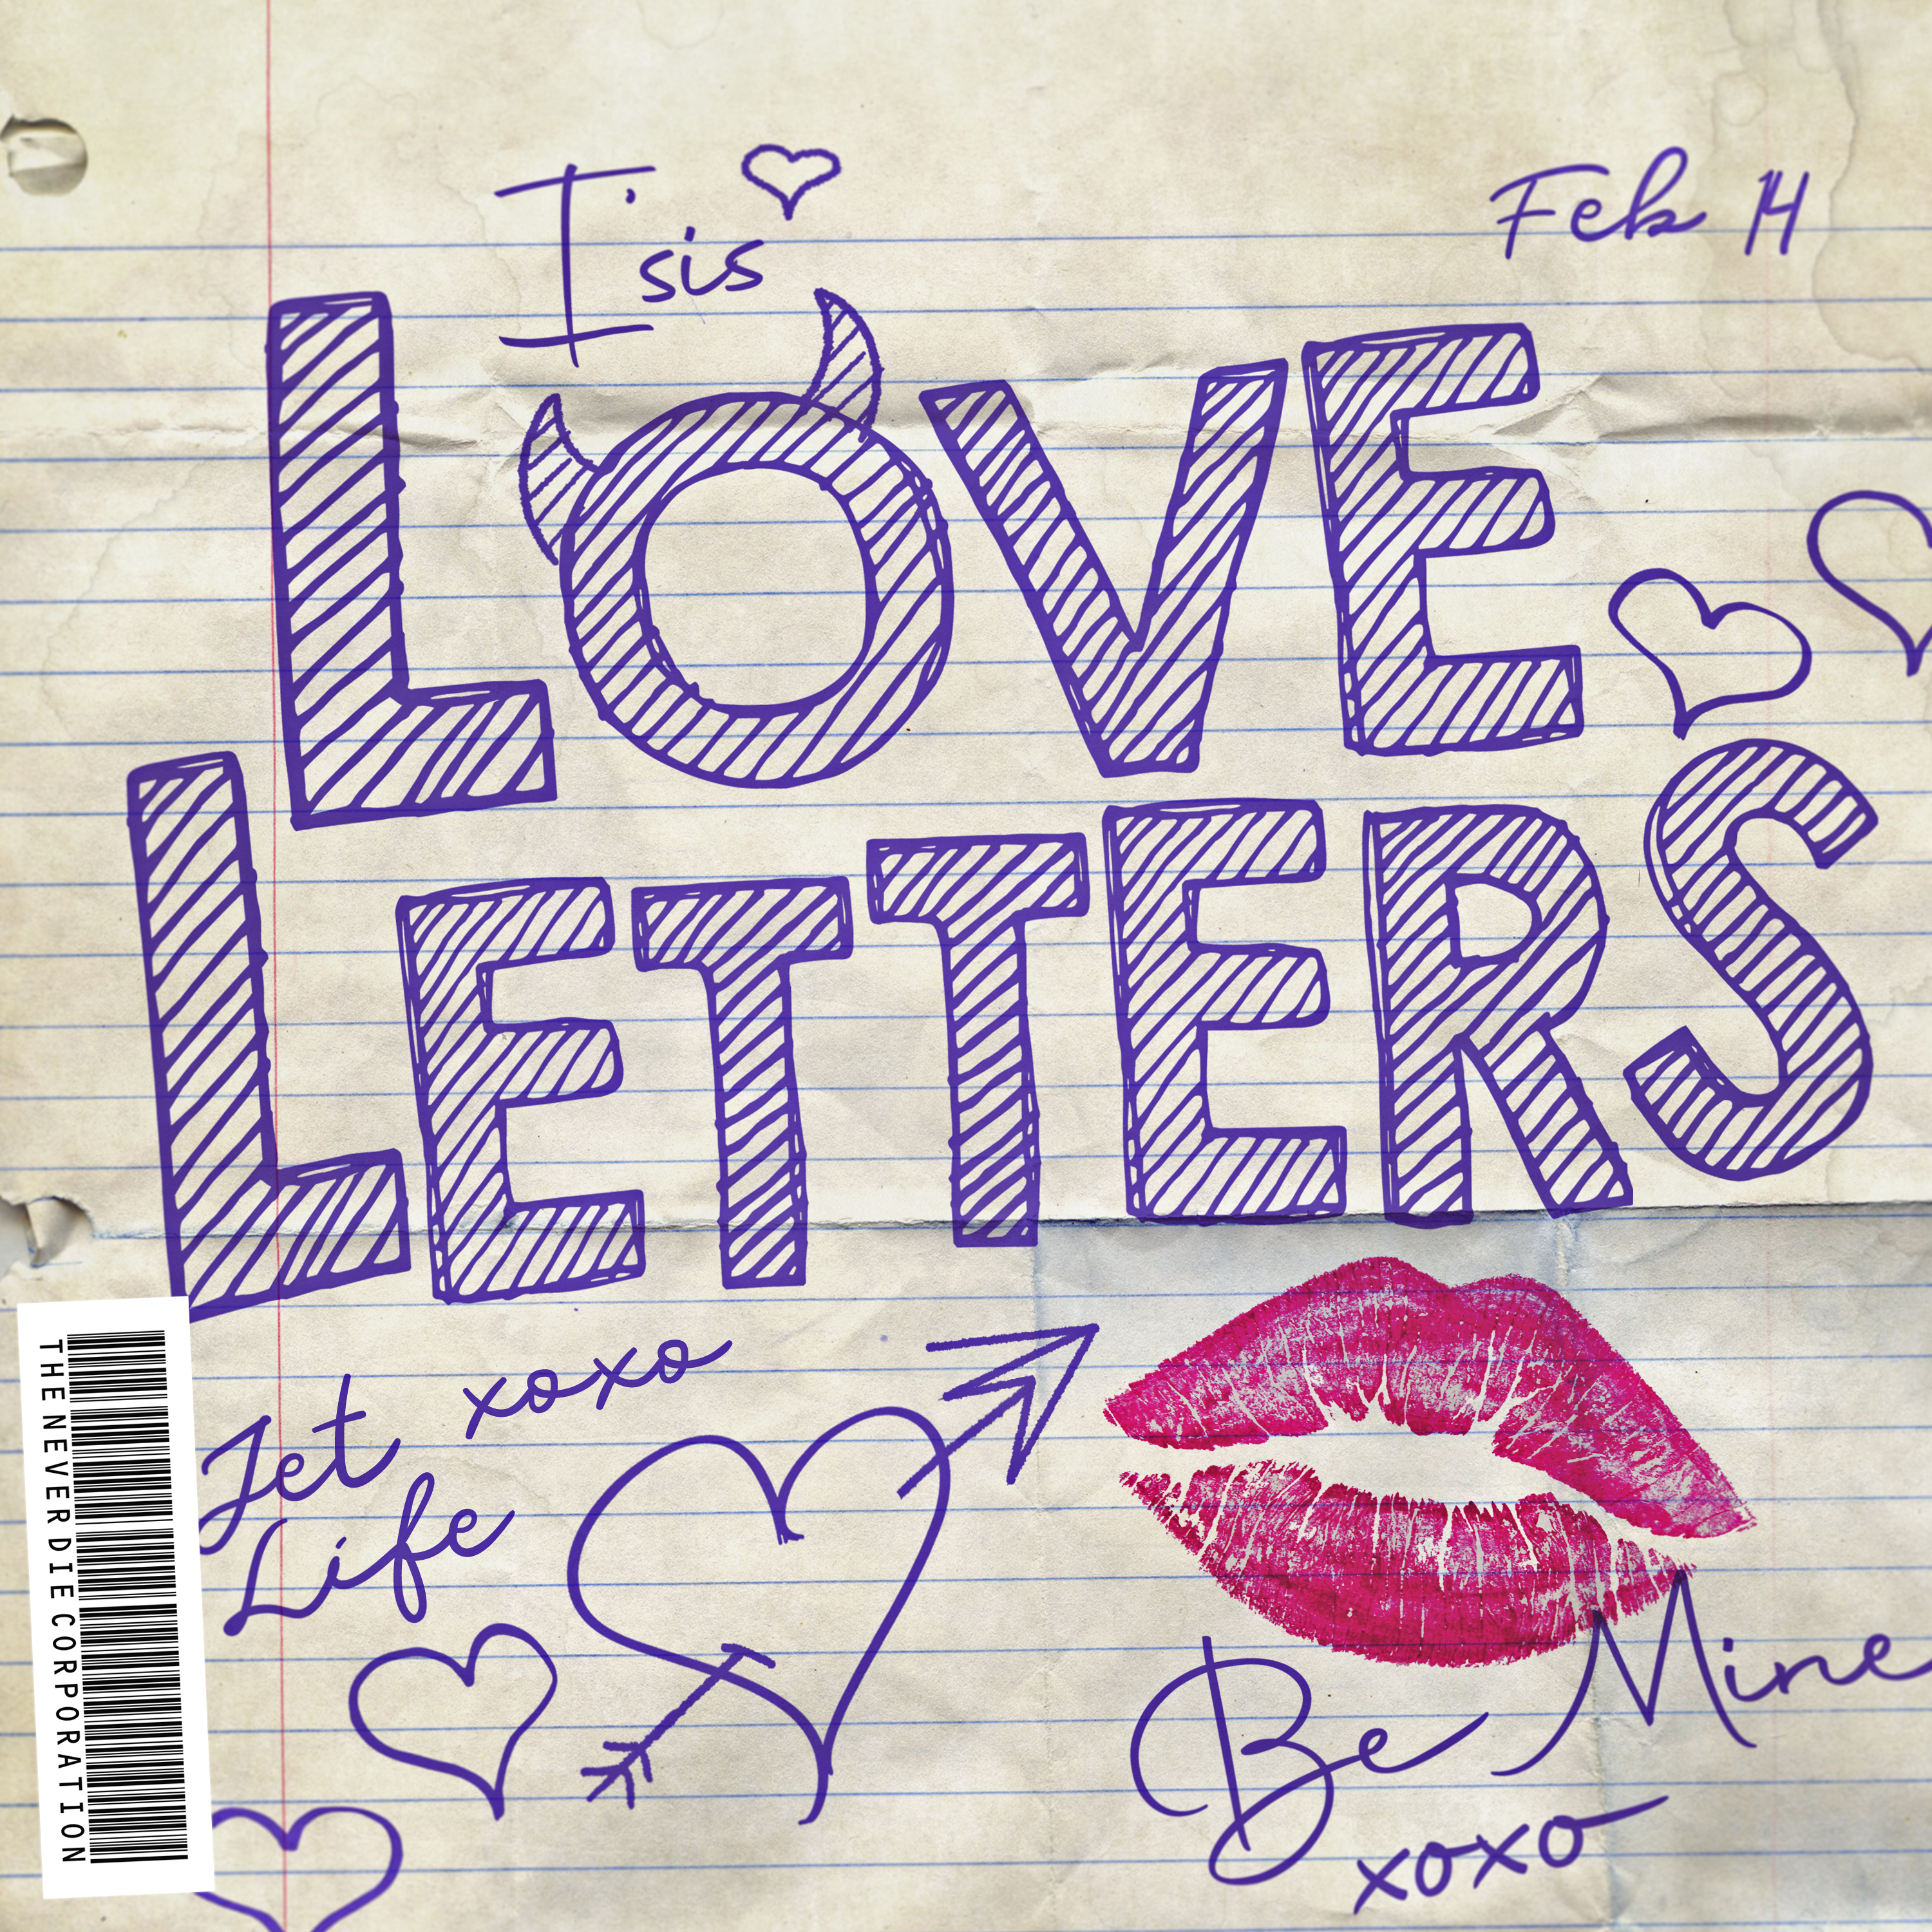 I'sis
Feb 14
LOVE
LETTERS
Jet xoxo
Life
Be Mine
xoxo
THE NEVER DIE CORPORATION